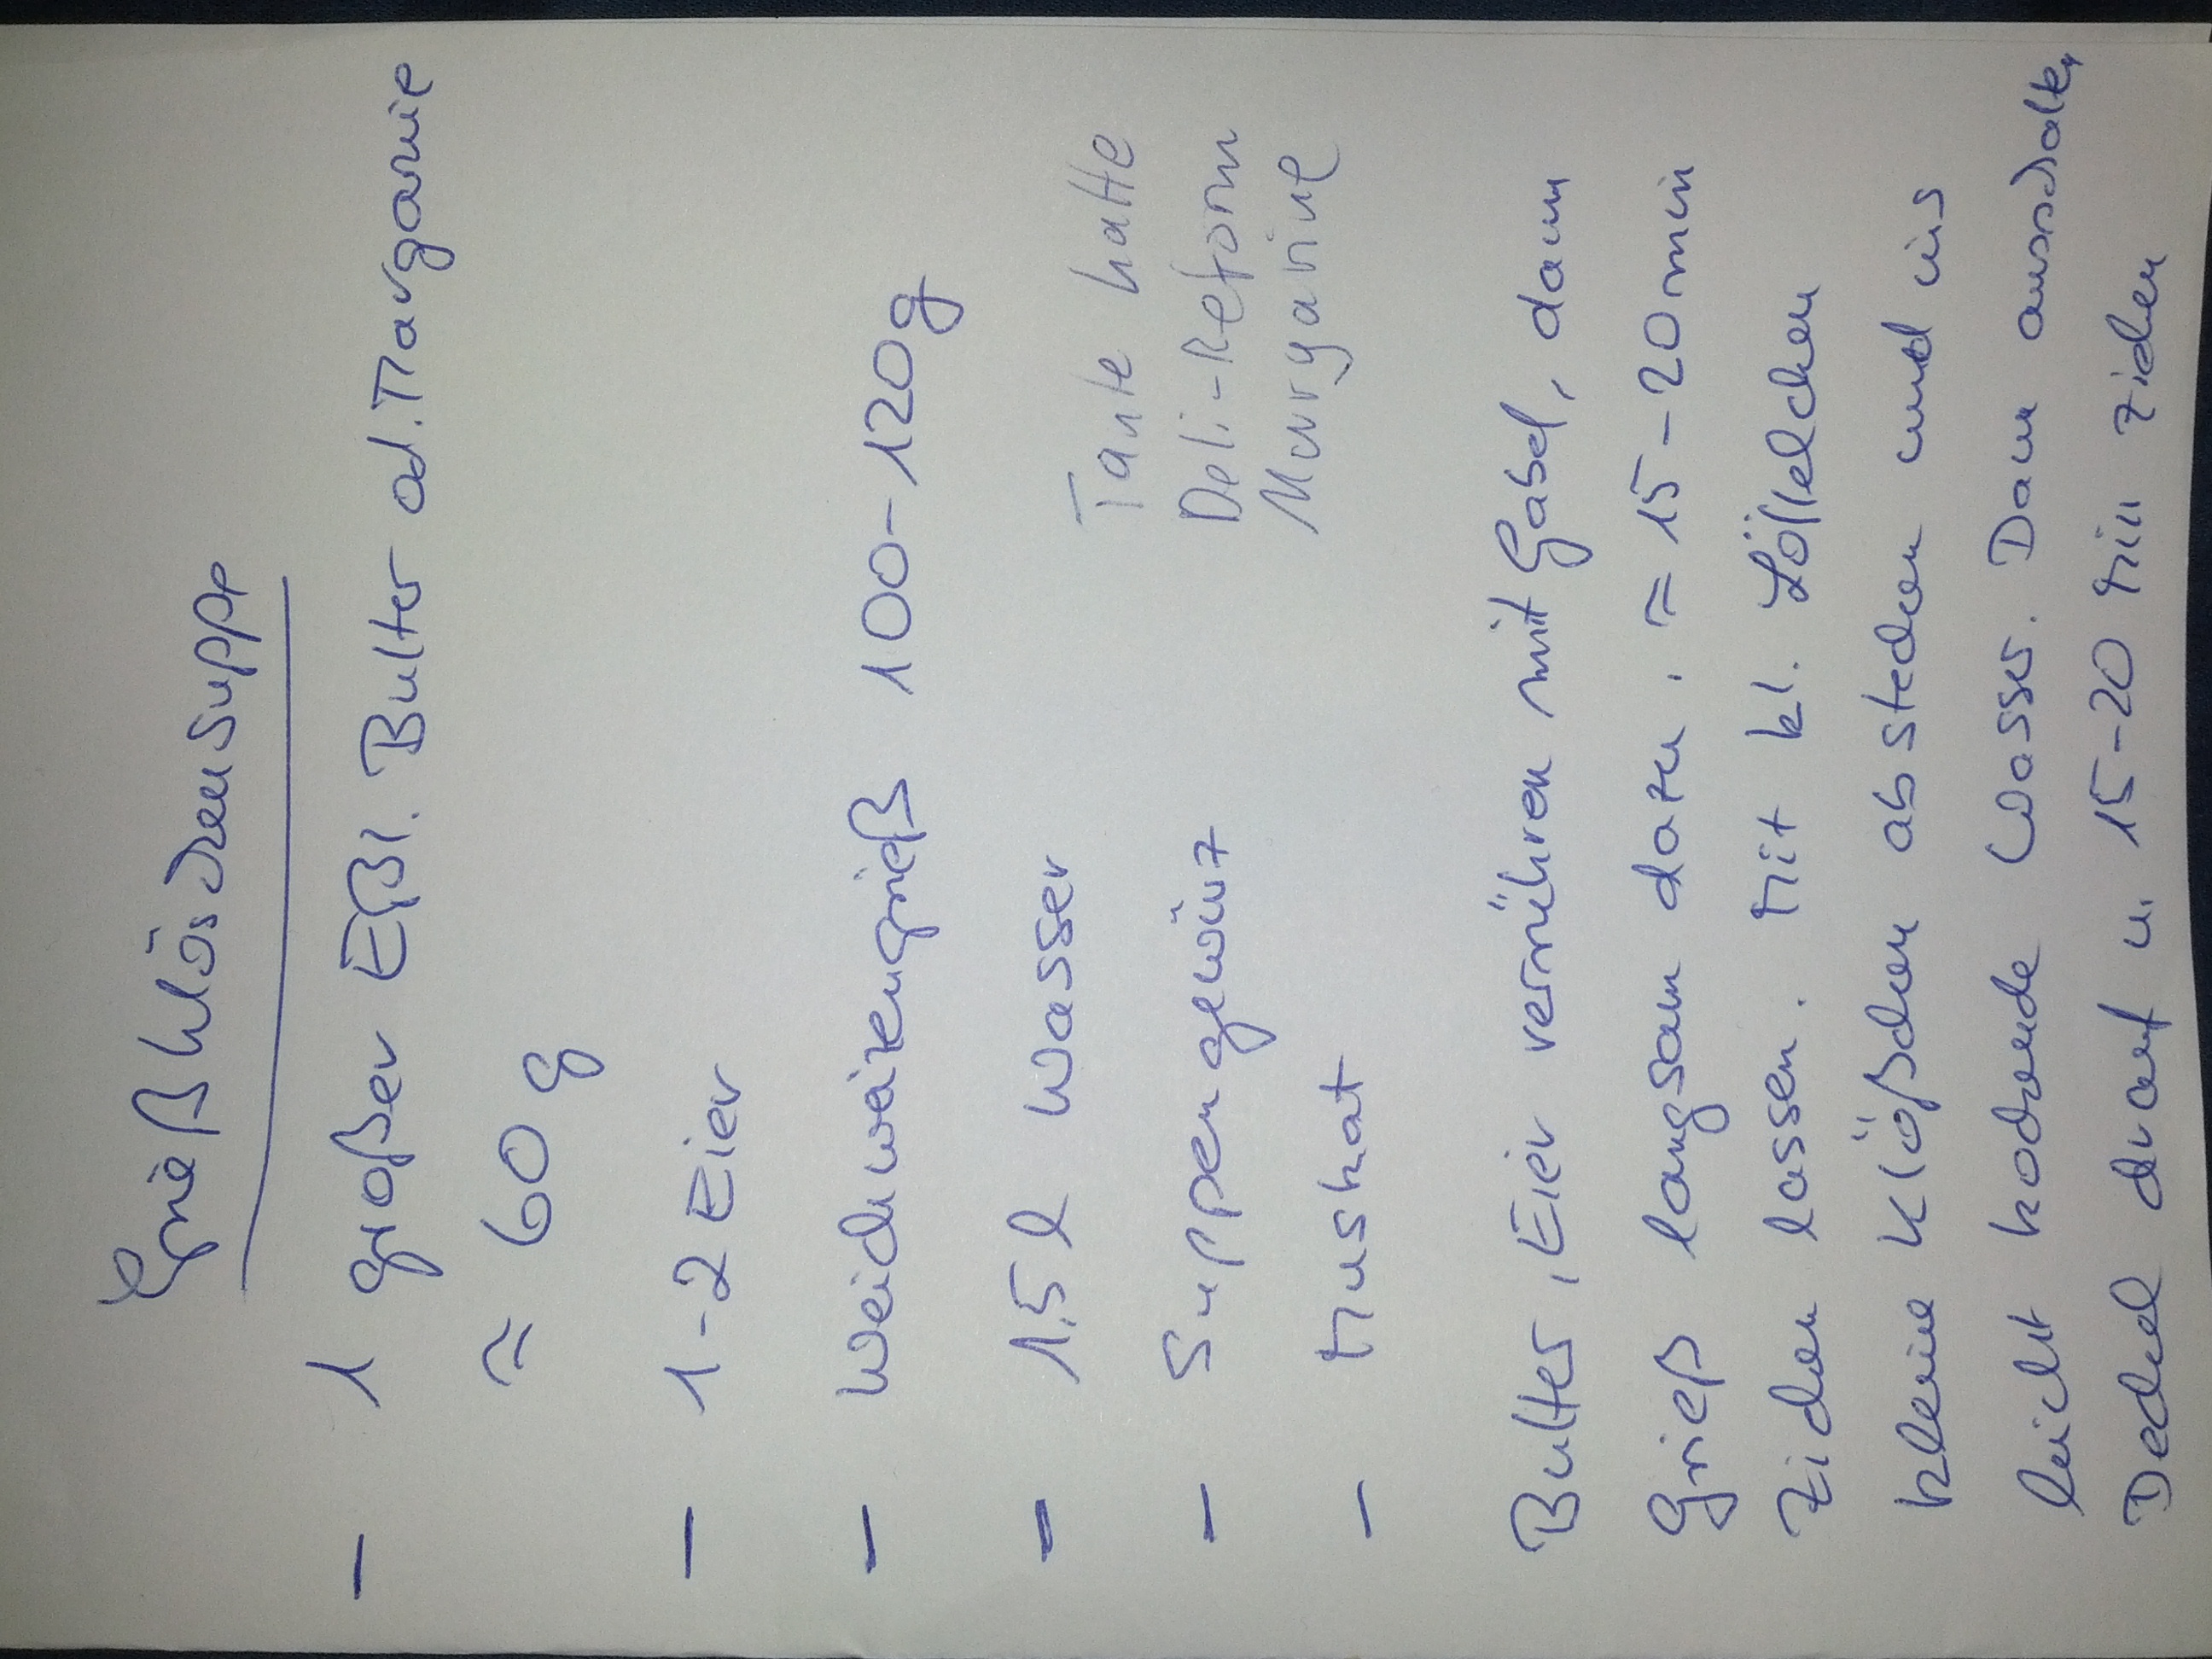 Grießklöschensuppe
- 1 großer Eßl. Butter od. Margarine
≈ 60 g
- 1-2 Eier
- Weichweizengrieß 100-120g
- 1.5 l Wasser
- Suppengewürz
- Muskat
Tante hatte
Deli-Reform
Margarine
Butter, Eier verrühren mit Gabel, dann
Grieß langsam dazu. ≈ 15-20min
ziehen lassen. Mit kl. Löffelchen
kleine Klößchen abstechen und ins
leicht kochende Wasser. Dann ausschalten,
Deckel drauf u. 15-20 Min ziehen